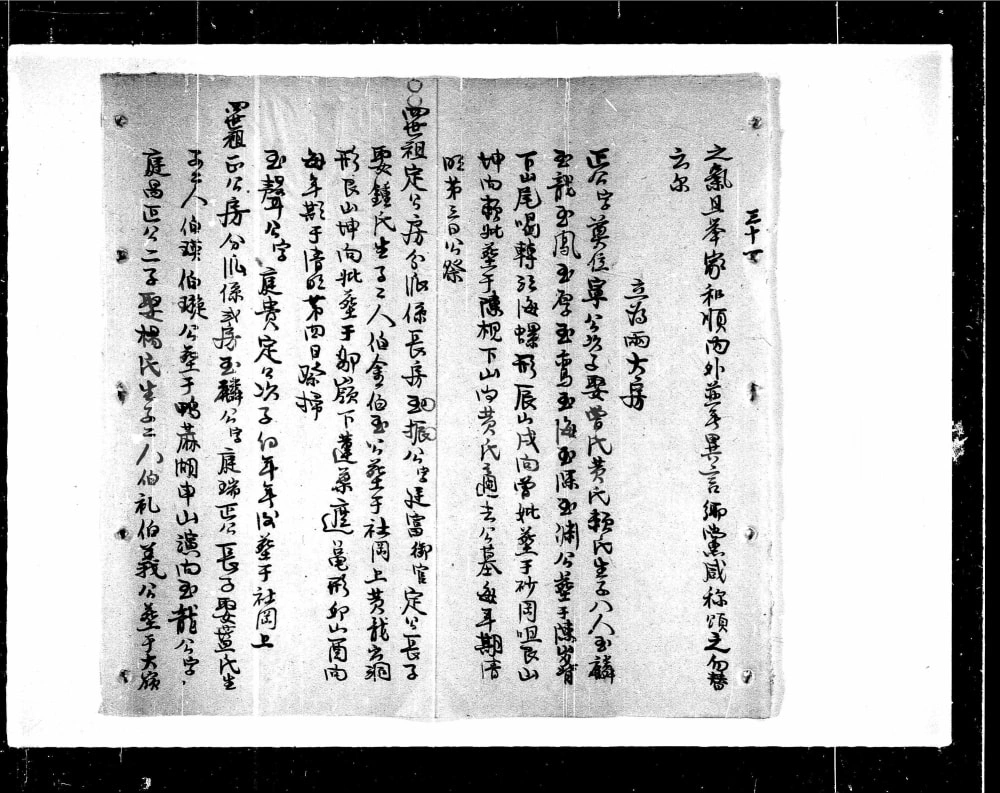 三十一
之氣且举家和順內外並無異言鄉黨咸称頌之勿替
云尔
立為兩大房
正公字莫位寧公次子娶曾氏黄氏賴氏生子八人玉麟
玉龍玉鳳玉玉鸾玉海玉深玉渊公塟于陳
下山尾喝轉水海螺形辰山戌向曽妣塟于砂岡咀艮山
坤向賴妣塟于陳梘下山向黄氏適去公墓每年期清
明第三日公祭
〇〇四世祖定公房分派係長房玉振公字廷富御官定公長子
娶鍾氏生子二人伯金伯玉公塟于社岡上黄龍出洞
形艮山坤向妣塟于嶺下蓮葉遮亀形卯山酉向
每年期于清明第四日祭掃
玉聲公字庭貴定公次子幻年年塟于社岡上
四世祖正公房分派係弍房玉麟公字庭瑞正公長子娶藍氏生
子二人伯瑛伯璇公塟于鴨蔴湖申山向玉龍公字
庭昌正公二子娶楊氏生子二人伯礼伯義公塟于大嶺